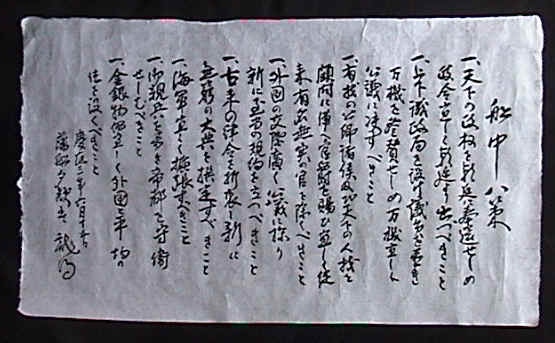 船中八策
一、天下の政権を朝廷に奉還せしめ
政令宜しく朝廷より出づべきこと
一、上下議政局を設け議員を置き
万機を参賛せしめ万機宜しく
公議に決すべきこと
一、有材の公卿諸侯及天下の人材を
顧問に備へ官爵を賜ひ宜しく従
来有名無実の官を除くべきこと
一、外国の交際広く公議に採り
新に至当の規約を立つべきこと
一、古来の律令を折衷し新に
無窮の大典を撰定すべきこと
一、海軍宜しく拡張すべきこと
一、御親兵を置き帝都を守衛
せしむべきこと
一、金銀物価宜しく外国と平均の
法を設くべきこと
慶応三年六月十五日
龍馬